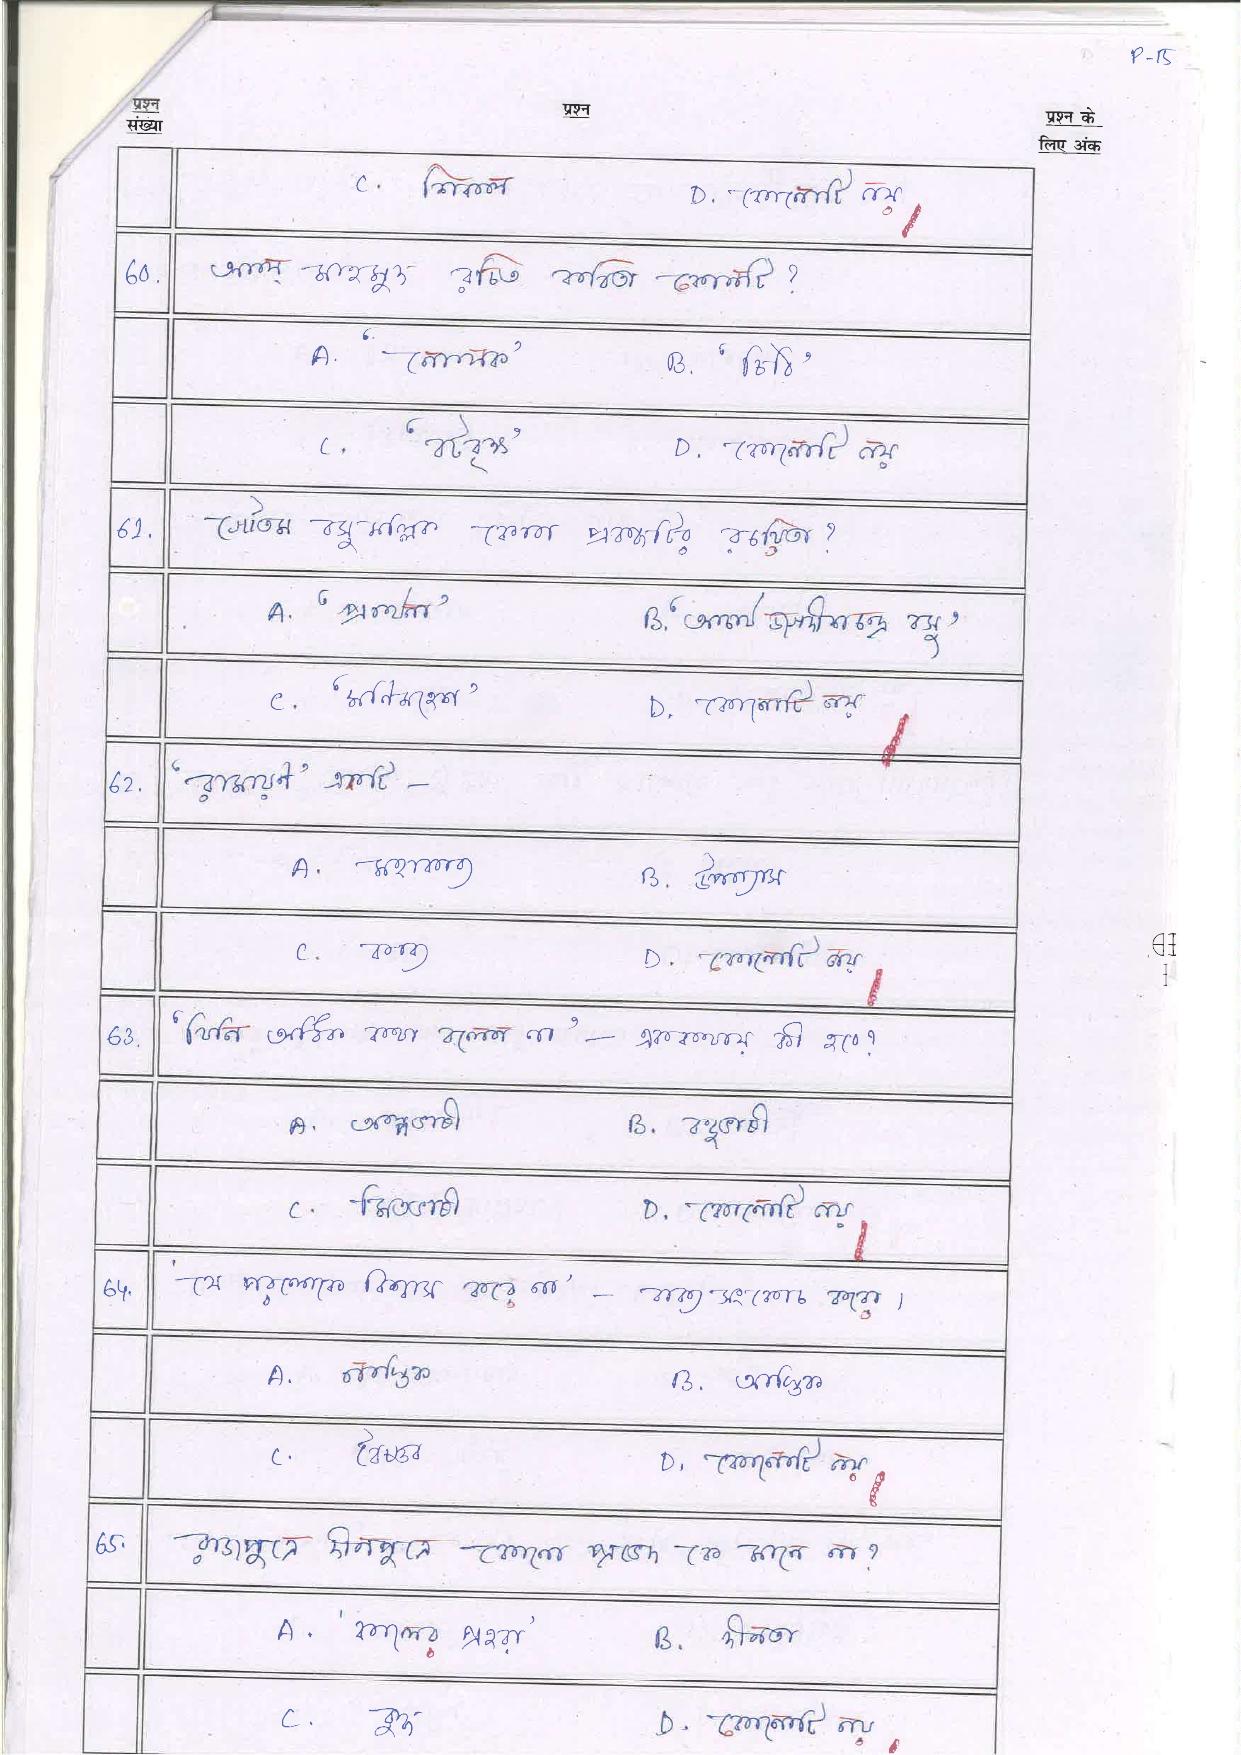 P-15
प्रश्न संख्या
प्रश्न
प्रश्न के लिए अंक
C. শিকল D. কোনোটি নয়
60. আল্ মাহমুদ রচিত কবিতা কোনটি?
A. 'নোলক' B. 'চিঠি'
C. 'বটবৃক্ষ' D. কোনোটি নয়
61. গৌতম বসুমল্লিক কোন প্রবন্ধটির রচয়িতা?
A. 'প্রার্থনা' B. 'আচার্য জগদীশচন্দ্র বসু'
C. 'মণিমহেশ' D. কোনোটি নয়
62. 'রামায়ণ' একটি –
A. মহাকাব্য B. উপন্যাস
C. কাব্য D. কোনোটি নয়
63. 'যিনি অধিক কথা বলেন না' – এককথায় কী হবে?
A. অল্পভাষী B. বহুভাষী
C. মিতভাষী D. কোনোটি নয়
64. 'যে পরলোকে বিশ্বাস করে না' – বাক্য সংকোচ করো।
A. নাস্তিক B. আস্তিক
C. বৈষ্ণব D. কোনোটি নয়
65. রাজপুত্রে দীনপুত্রে কোনো প্রভেদ কে মানে না?
A. 'কালের প্রহরা' B. দীনতা
C. D. কোনোটি নয়